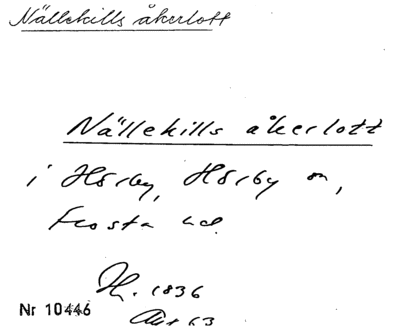 Nällekills åkerlott
Nällekills åkerlott
i Hörby, Hörby sn,
Frosta hd.
H. 1836
Nr 10446
Akt 63